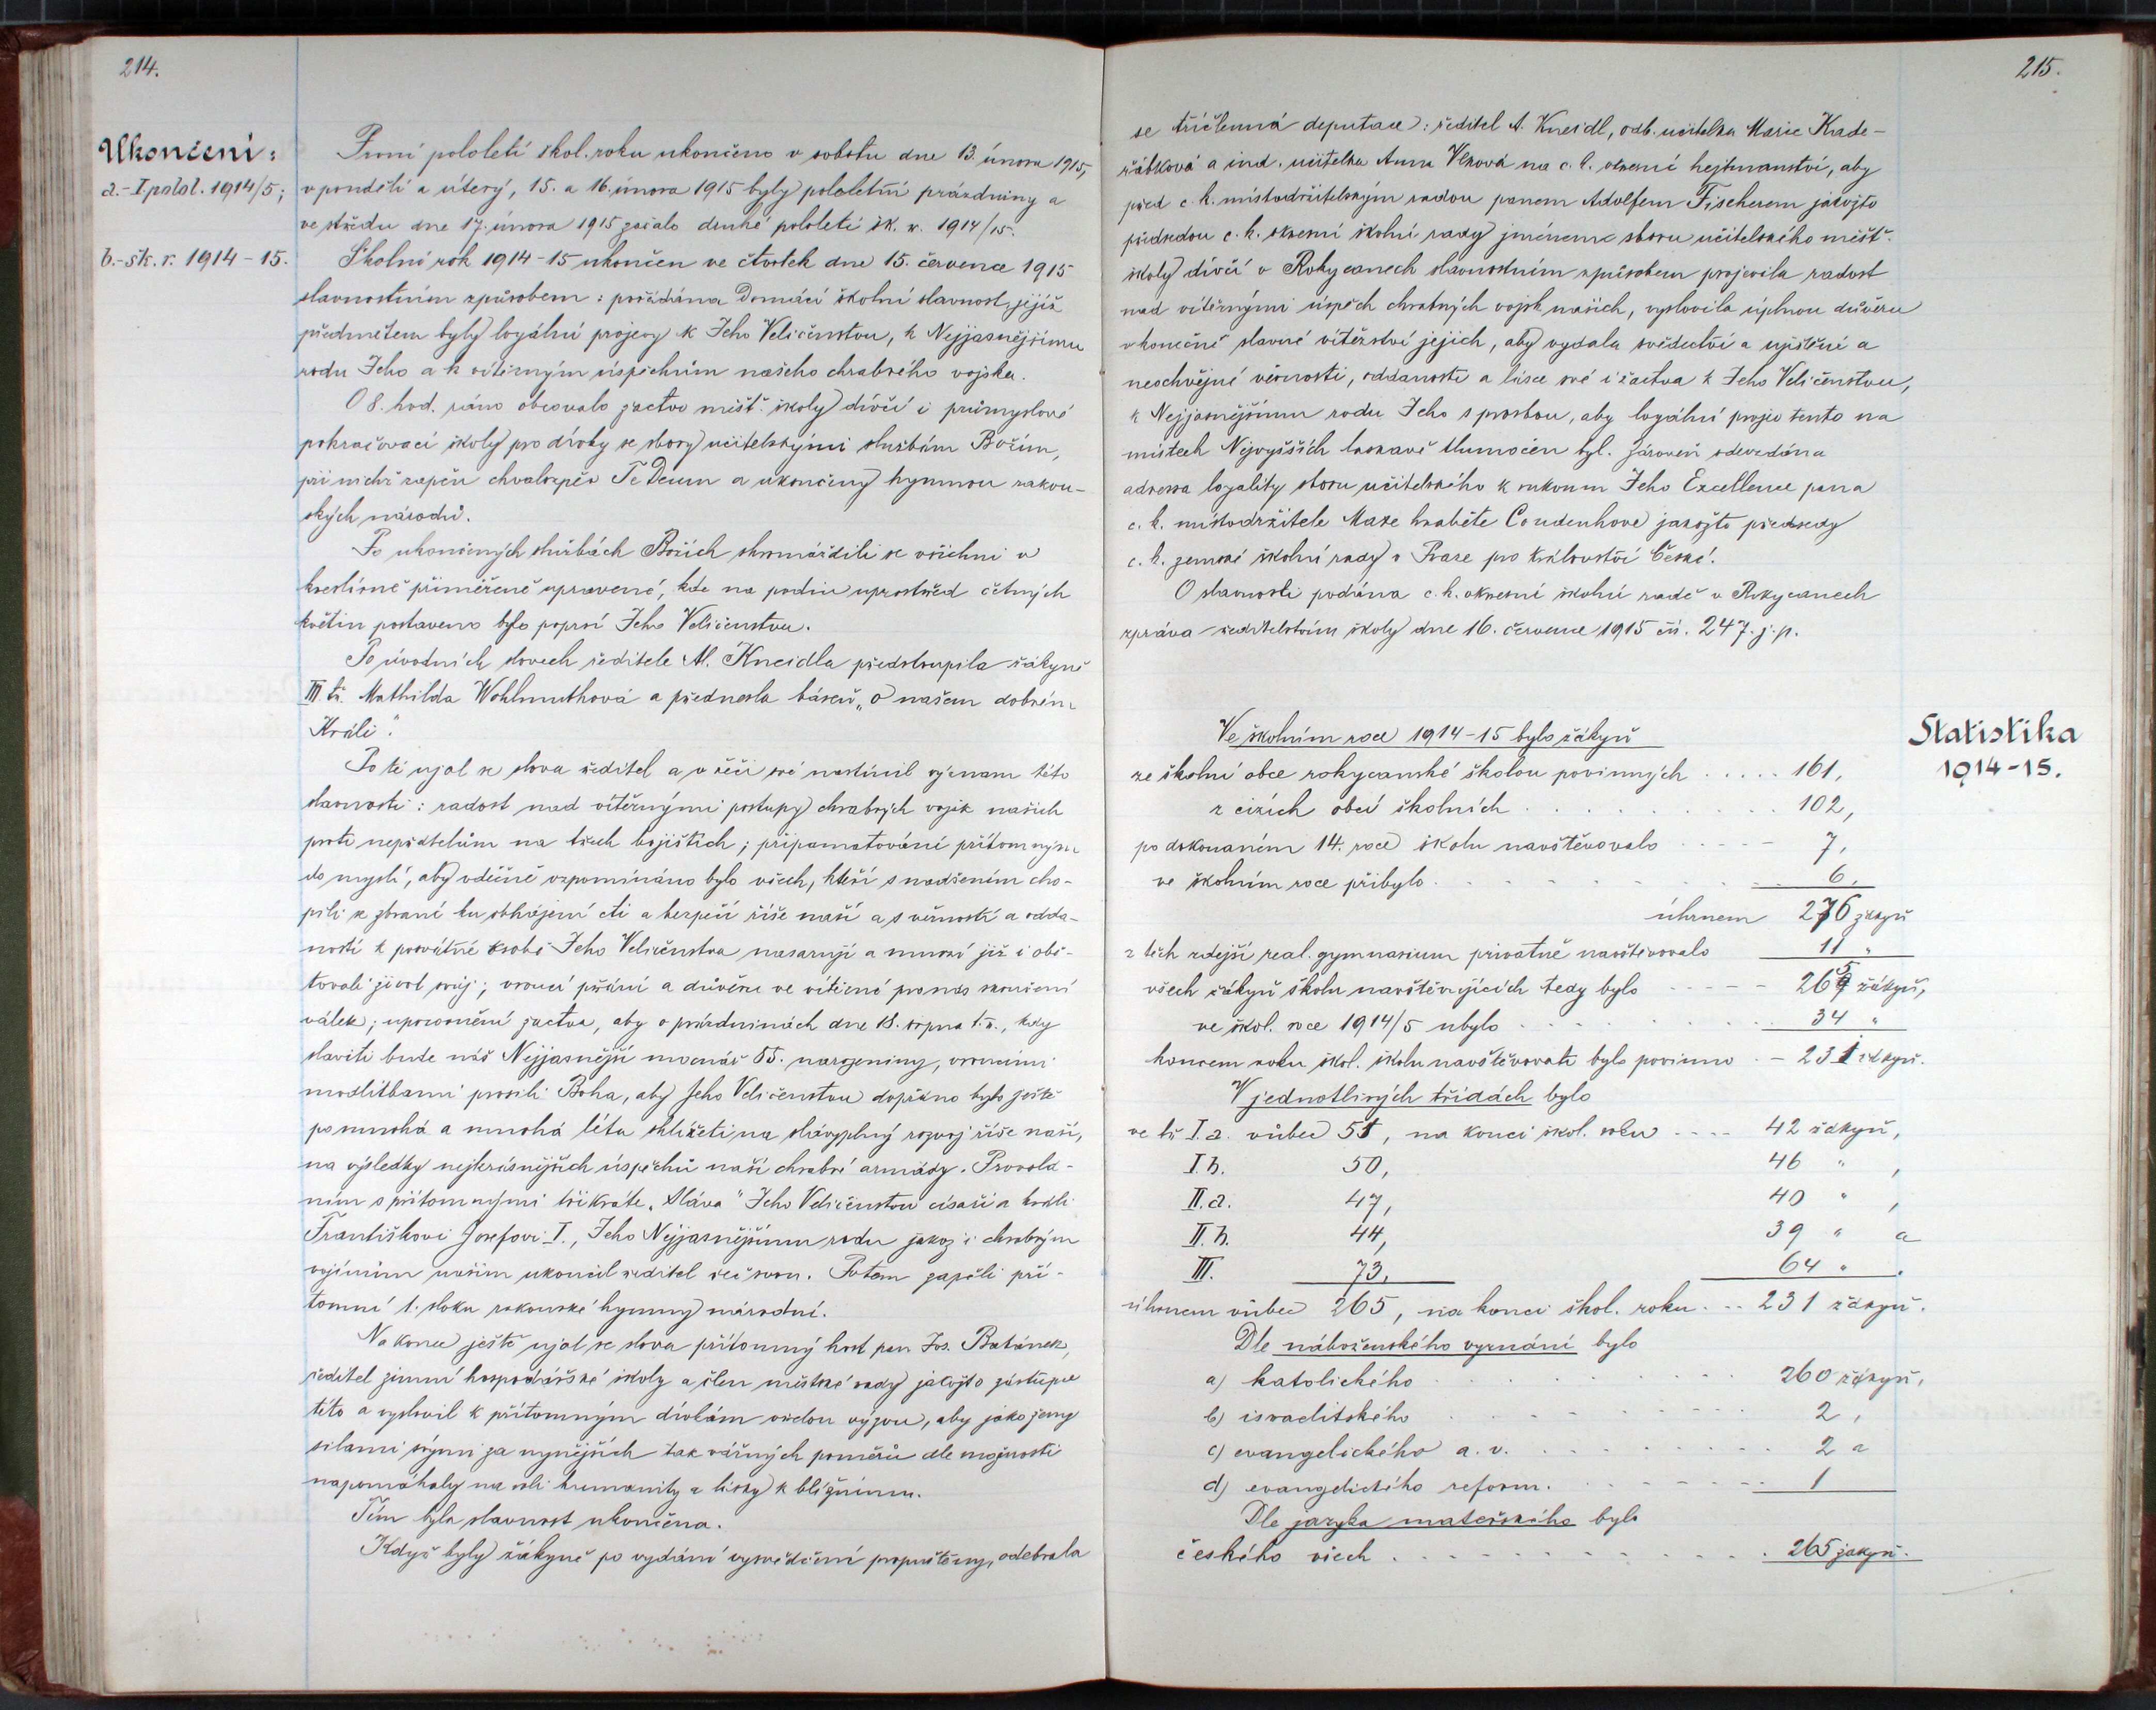 214.
Ukončení:
a.- I. polol. 1914/5;
b.- šk. r. 1914-15.
První pololetí škol. roku ukončeno v sobotu dne 13. února 1915,
v pondělí a úterý, 15. a 16. února 1915 byly pololetní prázdniny a
ve středu dne 17. února 1915 začalo druhé pololetí šk. r. 1914/15.
Školní rok 1914-15 ukončen ve čtvrtek dne 15. července 1915
slavnostním způsobem: pořádána Domácí školní slavnost, jejíž
předmětem byly loyální projevy k Jeho Veličenstvu, k Nejjasnějšímu
rodu Jeho a k vítězným úspěchům našeho chrabrého vojska.
O 8. hod. ráno obcovalo žactvo měšť. školy dívčí i průmyslové
pokračovací školy pro dívky se sbory učitelskými službám Božím,
při nichž zapěn chvalozpěv Te Deum a ukončeny hymnou rakou-
ských národů.
Po ukončených službách Božích shromáždili se všichni v
kreslírně přiměřeně upravené, kde na podiu uprostřed četných
květin postaveno bylo poprsí Jeho Veličenstva.
Po úvodních slovech ředitele Al. Kneidla předstoupila žákyně
III tř. Mathilda Wohlmuthová a přednesla báseň „O našem dobrém
Králi".
Poté ujal se slova ředitel a v řeči své nastínil význam této
slavnosti: radost nad vítěznými postupy chrabrých vojsk našich
proti nepřátelům na třech bojištích; připamatování přítomným
do mysli, aby vděčně vzpomínáno bylo všech, kteří s nadšením cho-
pili se zbraní ku obhájení cti a bezpečí říše naší a s věrností a odda-
ností k posvátné osobě Jeho Veličenstva nasazují a mnozí již i obě-
tovali život svůj; vroucí přání a důvěru ve vítězné pro nás skončení
válek; upozornění žactva, aby o prázdninách dne 18. srpna t. r., kdy
slaviti bude náš Nejjasnější mocnář 85. narozeniny, vroucími
modlitbami prosili Boha, aby Jeho Veličenstvu dopřáno bylo ještě
po mnohá a mnohá léta shlížeti na slávyplný rozvoj říše naší,
na výsledky nejkrásnějších úspěchů naší chrabré armády. Provolá-
ním s přítomnými třikráte „Sláva" Jeho Veličenstvu císaři a králi
Františkovi Josefovi I., Jeho Nejjasnějšímu rodu jakož i chrabrým
vojínům našim ukončil ředitel řeč svou. Potom zapěli pří-
tomní 1. sloku rakouské hymny národní.
Na konec ještě ujal se slova přítomný host pan Jos. Batánek,
ředitel zimní hospodářské školy a člen městské rady jakožto zástupce
této a vyslovil k přítomným dívkám vřelou výzvu, aby jako ženy
silami svými za nynějších tak vážných poměrů dle možnosti
napomáhaly na roli humanity a lásky k bližnímu.
Tím byla slavnost ukončena.
Když byly žákyně po vydání vysvědčení propuštěny, odebrala
215.
se tříčlenná deputace: ředitel A. Kneidl, odb. učitelka Marie Krade-
řábková a ind. učitelka Anna Vlková na c. k. okresní hejtmanství, aby
před c. k. místodržitelským radou panem Adolfem Fischerem jakožto
předsedou c. k. okresní školní rady jménem sboru učitelského měšť.
školy dívčí v Rokycanech slavnostním způsobem projevila radost
nad vítěznými úspěch chrabrých vojsk našich, vyslovila úplnou důvěru
v konečné slavné vítězství jejich, aby vydala svědectví a ujištění a
neochvějné věrnosti, oddanosti a lásce své i žactva k Jeho Veličenstvu,
k Nejjasnějšímu rodu Jeho s prosbou, aby loyální projev tento na
místech Nejvyšších laskavě tlumočen byl. Zároveň odevzdána
adressa loyality sboru učitelského k rukoum Jeho Excellence pana
c. k. místodržitele Maxe hraběte Coudenhove jakožto předsedy
c. k. zemské školní rady v Praze pro království České.
O slavnosti podána c. k. okresní školní radě v Rokycanech
zpráva ředitelstvím školy dne 16. července 1915 čís. 247. j. p.
Statistika
1914-15.
Ve školním roce 1914-15 bylo žákyň
ze školní obce rokycanské školou povinných ..... 161,
z cizích obcí školních ..... 102,
po dokonaném 14. roce školu navštěvovalo ..... 7,
ve školním roce přibylo ..... 6.
úhrnem 276 žákyň
z těch zdejší real. gymnasium privatně navštěvovalo 11 "
všech žákyň školu navštěvujících tedy bylo ..... 265 žákyň,
ve škol. roce 1914/5 ubylo ..... 34 "
koncem roku škol. školu navštěvovati bylo povinno .- 231 žákyň.
V jednotlivých třídách bylo
ve tř. I. a. vůbec 51, na konci škol. roku .... 42 žákyň,
I. b. 50, 46 " ,
II. a. 47, 40 " ,
II. b. 44, 39 " a
III. 73, 64 " .
úhrnem vůbec 265, na konci škol. roku ... 231 žákyň.
Dle náboženského vyznání bylo
a) katolického ..... 260 žákyň,
b) israelitského ..... 2,
c) evangelického a. v. ..... 2 a
d) evangelického reform. ..... 1
Dle jazyka mateřského bylo
českého všech ..... 265 žákyň.